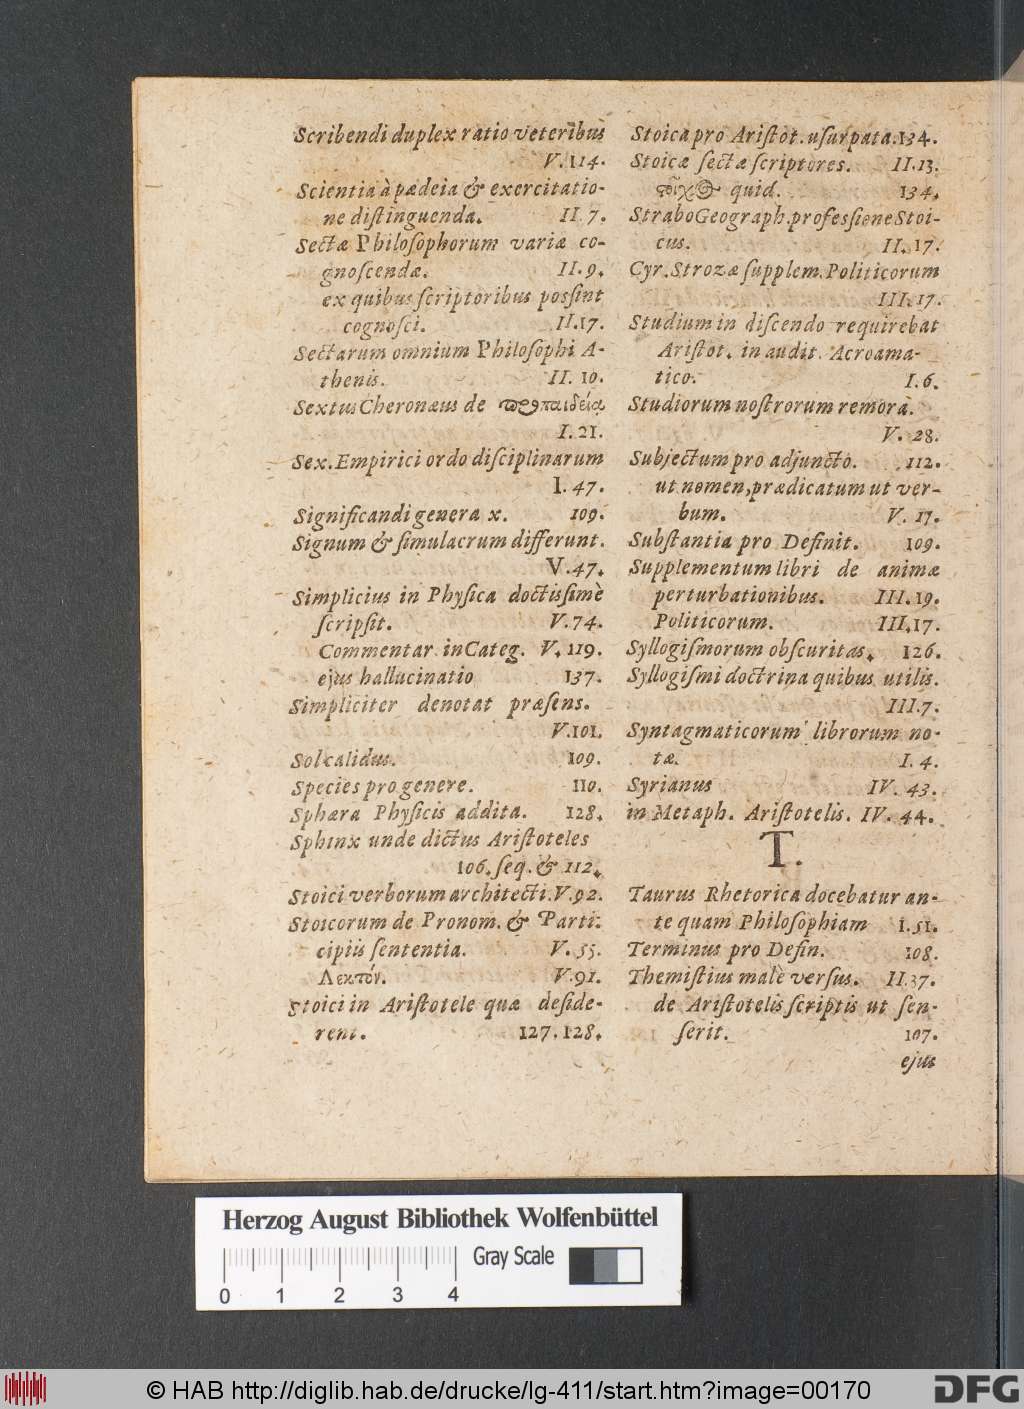 Scribendi duplex ratio veteribus
V. 114.
Scientia à pædeia & exercitatio-
ne distinguenda. II 7.
Sectæ Philosophorum variæ co-
gnoscendæ. II. 9.
ex quibus scriptoribus possint
cognosci. II. 17.
Sectarum omnium Philosophi A-
thenis. II. 10.
Sextus Cheronæus de προπαιδεία
I. 21.
Sex. Empirici ordo disciplinarum
I. 47.
Significandi genera x. 109.
Signum & simulacrum differunt.
V. 47.
Simplicius in Physica doctissimè
scripsit. V. 74.
Commentar. in Categ. V. 119.
ejus hallucinatio 137.
Simpliciter denotat præsens.
V. 101.
Sol calidus. 109.
Species pro genere. 110.
Sphæra Physicis addita. 128.
Sphinx unde dictus Aristoteles
106. seq. & 112.
Stoici verborum architecti. V. 92.
Stoicorum de Pronom. & Parti-
cipiis sententia. V. 55.
Λεκτόν. V. 91.
Stoici in Aristotele quæ deside-
rent. 127. 128.
Stoica pro Aristot. usurpata. 134.
Stoicæ sectæ scriptores. II. 13.
quid. 134.
Strabo Geograph. professione Stoi-
cus. II. 17.
Cyr. Strozæ supplem. Politicorum
III. 17.
Studium in discendo requirebat
Aristot. in audit. Acroama-
tico. I. 6.
Studiorum nostrorum remora.
V. 28.
Subjectum pro adjuncto. 112.
ut nomen, prædicatum ut ver-
bum. V. 17.
Substantia pro Definit. 109.
Supplementum libri de animæ
perturbationibus. III. 19.
Politicorum. III. 17.
Syllogismorum obscuritas. 126.
Syllogismi doctrina quibus utilis.
III. 7.
Syntagmaticorum librorum no-
tæ. I. 4.
Syrianus IV. 43.
in Metaph. Aristotelis. IV. 44.
T.
Taurus Rhetorica docebatur an-
te quam Philosophiam I. 51.
Terminus pro Defin. 108.
Themistius malè versus. II. 37.
de Aristotelis scriptis ut sen-
serit. 107.
ejus
Herzog August Bibliothek Wolfenbüttel
Gray Scale
0 1 2 3 4
© HAB http://diglib.hab.de/drucke/lg-411/start.htm?image=00170
DFG